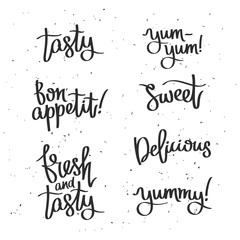 tasty
bon
appetit!
fresh
and
tasty
yum-
yum!
Sweet
Delicious
yummy!